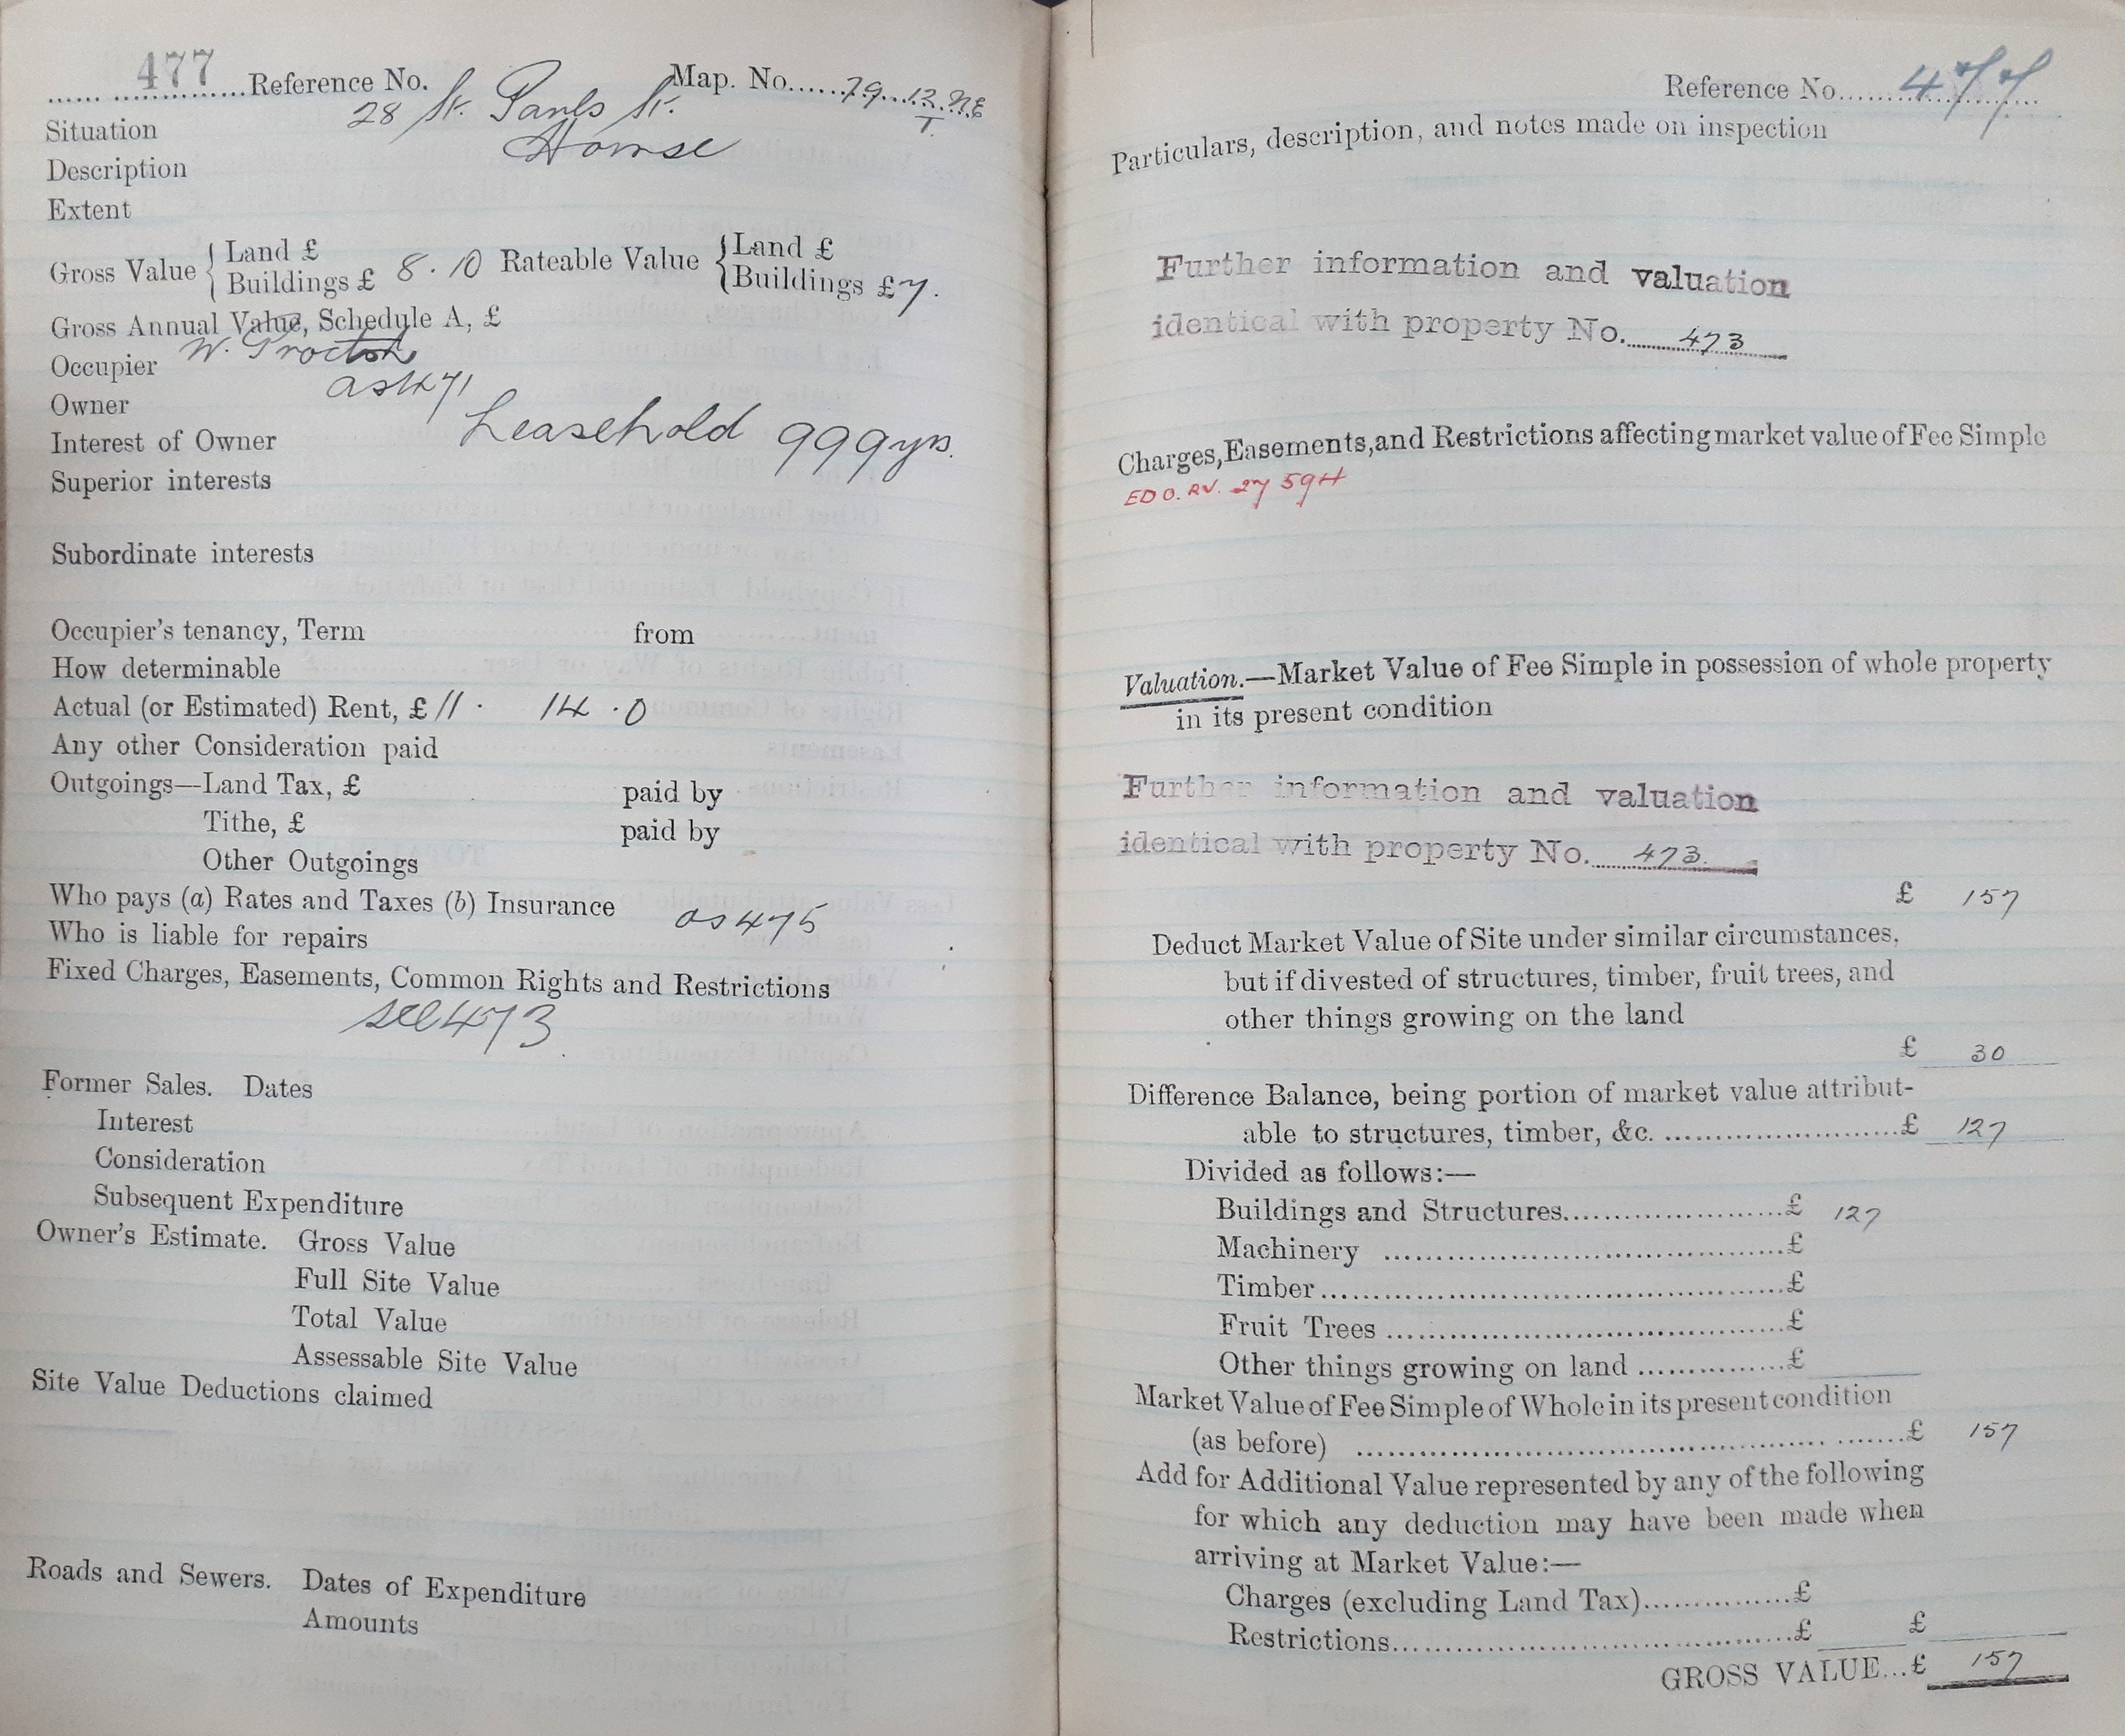 477 Reference No. Map. No. 79.12.NE
T.
Situation 28 St. Pauls St.
Description House
Extent
Gross Value { Land £ Buildings £ 8.10 Rateable Value { Land £ Buildings £ 7.
Gross Annual Value, Schedule A, £
Occupier W. Proctor
Owner as 471
Interest of Owner Leasehold 999 yrs.
Superior interests
Subordinate interests
Occupier's tenancy, Term from
How determinable
Actual (or Estimated) Rent, £ 11 . 14 . 0
Any other Consideration paid
Outgoings—Land Tax, £ paid by
Tithe, £ paid by
Other Outgoings
Who pays (a) Rates and Taxes (b) Insurance as 475
Who is liable for repairs
Fixed Charges, Easements, Common Rights and Restrictions
see 473
Former Sales. Dates
Interest
Consideration
Subsequent Expenditure
Owner's Estimate. Gross Value
Full Site Value
Total Value
Assessable Site Value
Site Value Deductions claimed
Roads and Sewers. Dates of Expenditure
Amounts
Reference No. 477
Particulars, description, and notes made on inspection
Further information and valuation
identical with property No. 473
Charges, Easements, and Restrictions affecting market value of Fee Simple
ED O. RV. 27 594
Valuation.—Market Value of Fee Simple in possession of whole property
in its present condition
Further information and valuation
identical with property No. 473.
£ 157
Deduct Market Value of Site under similar circumstances,
but if divested of structures, timber, fruit trees, and
other things growing on the land
£ 30
Difference Balance, being portion of market value attribut-
able to structures, timber, &c. £ 127
Divided as follows:—
Buildings and Structures £ 127
Machinery £
Timber £
Fruit Trees £
Other things growing on land £
Market Value of Fee Simple of Whole in its present condition
(as before) £ 157
Add for Additional Value represented by any of the following
for which any deduction may have been made when
arriving at Market Value:—
Charges (excluding Land Tax) £
Restrictions £ £
GROSS VALUE... £ 157